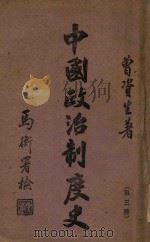 曾資生著
中國政治制度史
(第三冊)
馬衡署檢